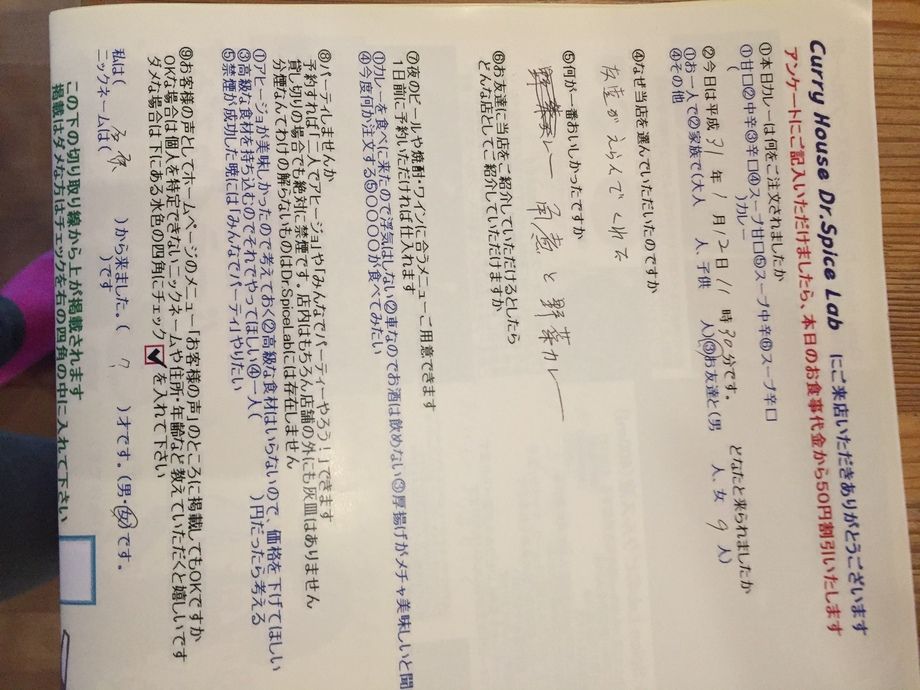 Curry House Dr.Spice Lab にご来店いただきありがとうございます
アンケートにご記入いただけましたら、本日のお食事代金から50円割引いたします
①本日カレーは何をご注文されましたか
①甘口②中辛③辛口④スープ甘口⑤スープ中辛⑥スープ辛口
( )カレー
②今日は平成 31 年 1 月 12 日 11 時 30 分です。 どなたと来られましたか
①お一人で②家族で(大人 人、子供 人)③お友達と(男 人、女 9 人)
④その他
④なぜ当店を選んでいただいたのですか
友達がえらんでくれた
⑤何が一番おいしかったですか
と野菜カレー
⑥お友達に当店をご紹介していただけるとしたら
どんな店としてご紹介していただけますか
⑦夜のビールや焼酎・ワインに合うメニューご用意できます
1日前に予約いただければ仕入れます
①カレーを食べに来たので浮気はしない②車なのでお酒は飲めない③厚揚げがメチャ美味しいと聞
④今度何か注文する⑤○○○○が食べてみたい
⑧パーティしませんか
予約すれば「二人でアヒージョ」や「みんなでパーティーやろう!」できます
貸し切りの場合でも絶対に禁煙です。店内はもちろん店舗の外にも灰皿はありません
分煙なんてわけの解らないものはDr.SpiceLabには存在しません
①アヒージョが美味しかったので考えておく②高級な食材はいらないので、価格を下げてほしい
③高級な食材を持ち込むのでそれでやってほしい④一人( )円だったら考える
⑤禁煙が成功した暁には「みんなでパーティ」やりたい
⑨お客様の声としてホームページのメニュー「お客様の声」のところに掲載してもOKですか
OKな場合は個人を特定できないニックネームや住所・年齢など教えていただくと嬉しいです
ダメな場合は下にある水色の四角にチェック ✔ を入れて下さい
私は( )から来ました。( ? )才です。(男・女)です。
ニックネームは( )です
この下の切り取り線から上が掲載されます
掲載はダメな方はチェックを右の四角の中に入れて下さい